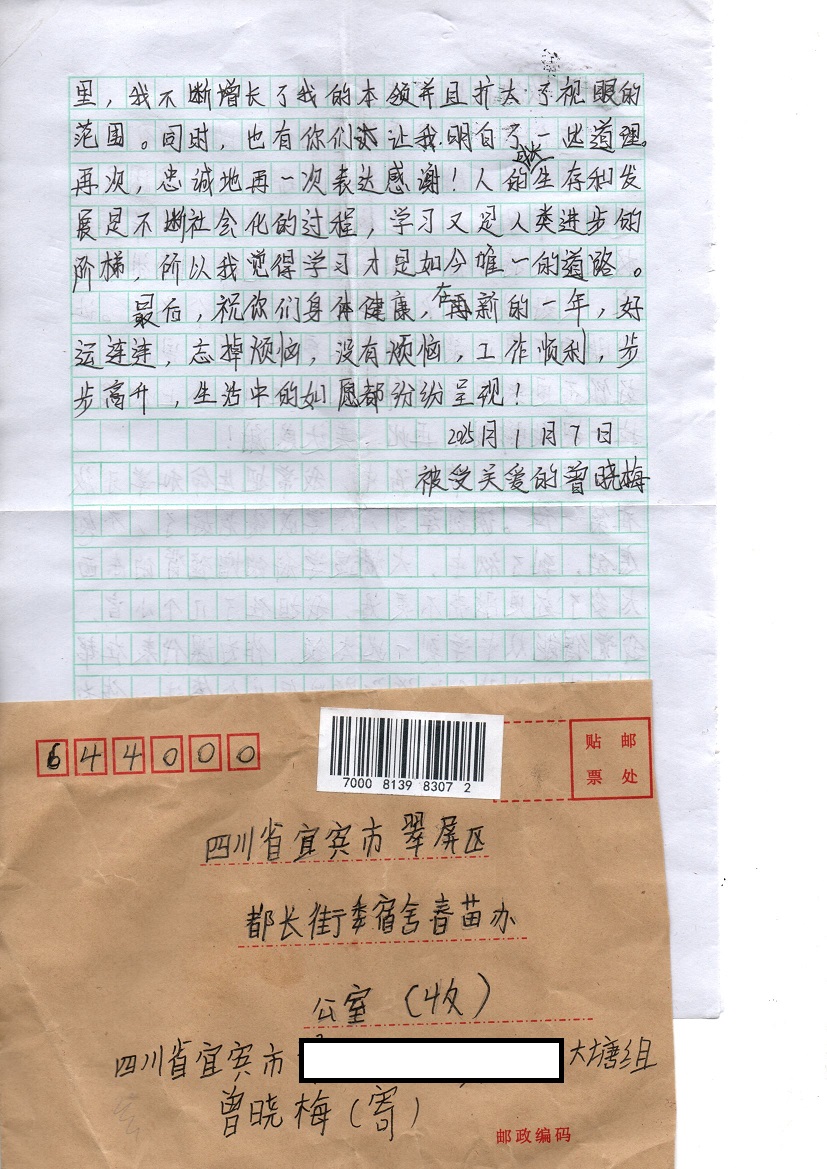 里，我不断增长了我的本领并且扩大了视眼的
范围。同时，也有你们让我明白了一些道理。
再次，忠诚地再一次表达感谢！人的生存和发
成长
展是不断社会化的过程，学习又是人类进步的
阶梯，所以我觉得学习才是如今唯一的道路。
最后，祝你们身体健康，在再新的一年，好
运连连，忘掉烦恼，没有烦恼，工作顺利，步
步高升，生活中的如愿都纷纷呈现！
2025月1月7日
被受关爱的曾晓梅
644000
7000 8139 8307 2
贴邮
票处
四川省宜宾市翠屏区
都长街宿舍春苗办
公室（收）
四川省宜宾市 大塘组
曾晓梅（寄）
邮政编码